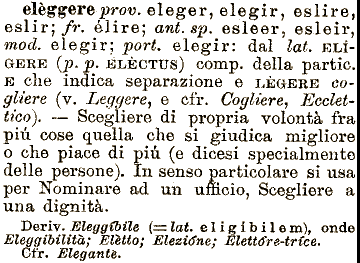 elèggere prov. eleger, elegir, eslire,
eslir; fr. élire; ant. sp. esleer, esleir,
mod. elegir; port. elegir: dal lat. ELÍ-
GERE (p. p. ÈLÈCTUS) comp. della partic.
E che indica separazione e LÈGERE co-
gliere (v. Leggere, e cfr. Cogliere, Ecclet-
tico). — Scegliere di propria volontà fra
piú cose quella che si giudica migliore
o che piace di piú (e dicesi specialmente
delle persone). In senso particolare si usa
per Nominare ad un ufficio, Scegliere a
una dignità.
Deriv. Eleggíbile (= lat. eligibilem), onde
Eleggibilità; Elètto; Elezióne; Elettóre-trice.
Cfr. Elegante.